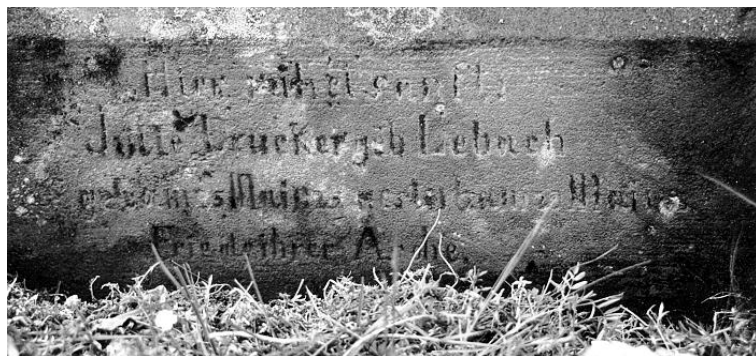 Hier ruhet sanft
Jutle Drucker geb Lebach
geb. in Mainz gestorben in Mainz
Friede ihrer Asche.